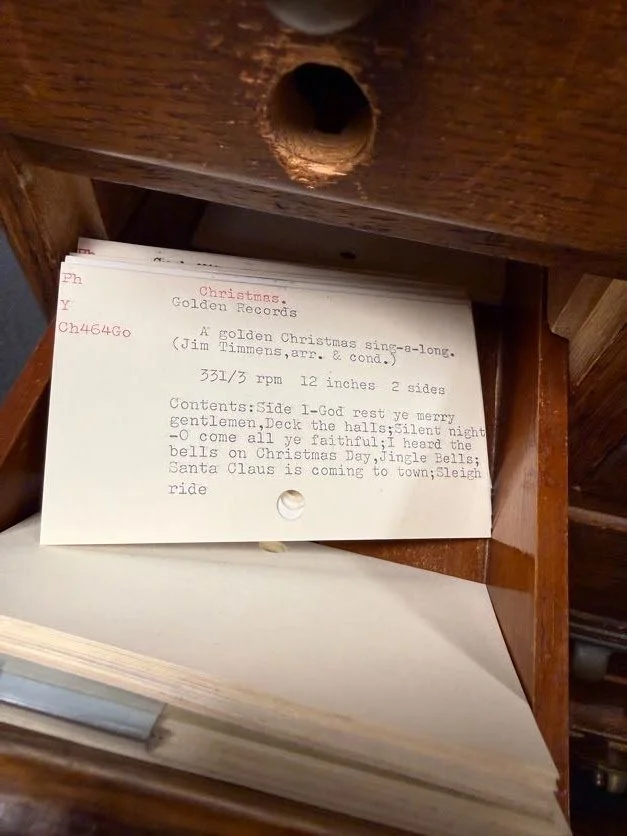 Ph
Christmas.
Y
Golden Records
Ch464Go
A golden Christmas sing-a-long.
(Jim Timmens,arr. & cond.)
331/3 rpm 12 inches 2 sides
Contents:Side 1-God rest ye merry
gentlemen,Deck the halls;Silent night
-O come all ye faithful;I heard the
bells on Christmas Day,Jingle Bells;
Santa Claus is coming to town;Sleigh
ride